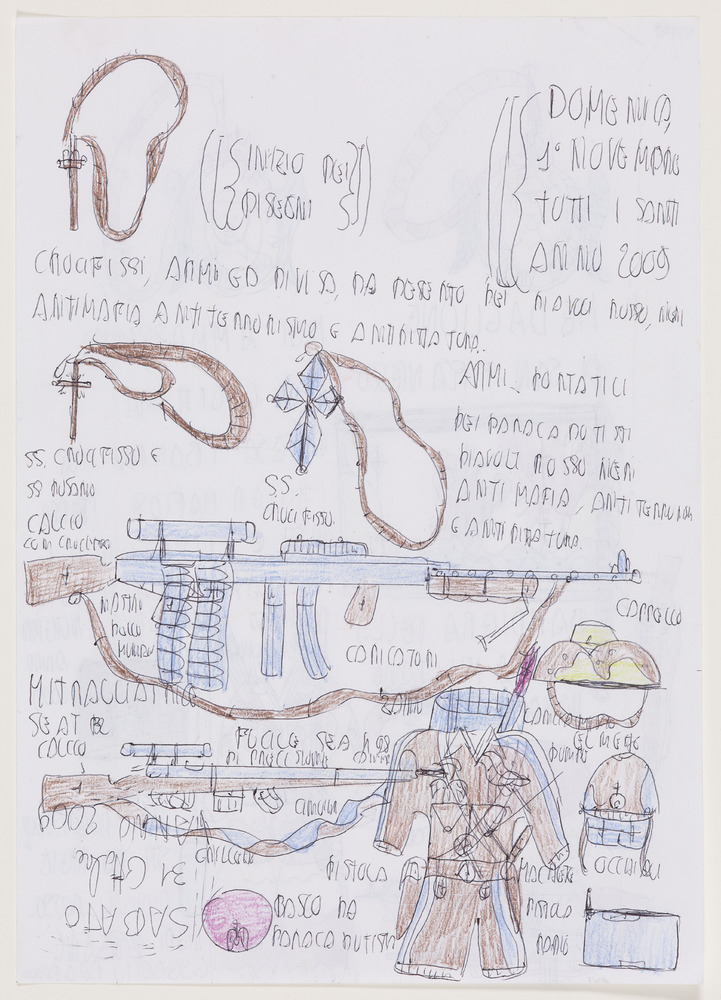 DOMENICA,
1° NOVEMBRE
TUTTI I SANTI
ANNO 2009
INIZIO DEI
DISEGNI
CROCIFISSI, ARMI ED DIVISA, DA DESERTO DEI, DIAVOLI ROSSO, NERI
ANTIMAFIA ANTITERRORISMO E ANTIDITTATURA.
SS. CROCIFISSO E
SS ROSARIO
S.S.
CROCIFISSO.
ARMI PORTATILI
DEI PARACADUTISTI
DIAVOLI ROSSO NERI
ANTI MAFIA, ANTITERRORIS
E ANTIDITTATURA.
CALCIO
CON CROCIFISSO
NASTRO
CARICATORI
CAPPELLO
MITRAGLIATRICE
SEAT
CALCIO
ZAINO
FUCILE SEA
DI PRECISIONE
ELMETTO
CINTURA
OCCHIALI
PISTOLA
MACHETE
BASCO DA
PARACADUTISTA
SABATO
31 Ottobre
ANNO 2009